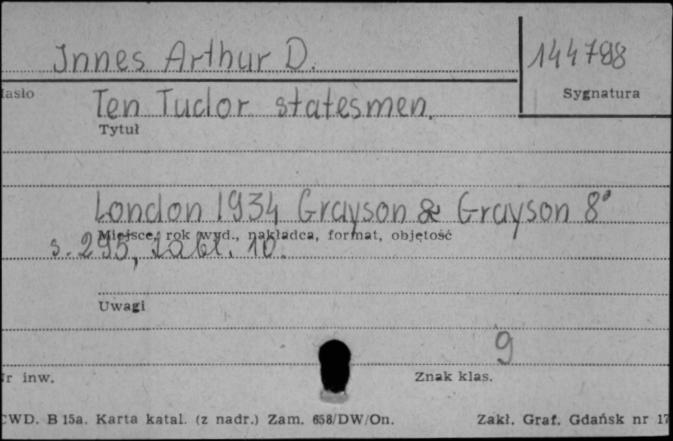 Innes Arthur D.
144798
Sygnatura
Ten Tudor statesmen.
Tytuł
London 1934 Grayson & Grayson 8°
Miejsce, rok wyd., nakładca, format, objętość
s. 295, tabl. 10.
Uwagi
9
inw.
Znak klas.
CWD. B 15a. Karta katal. (z nadr.) Zam. 658/DW/On.
Zakł. Graf. Gdańsk nr 17